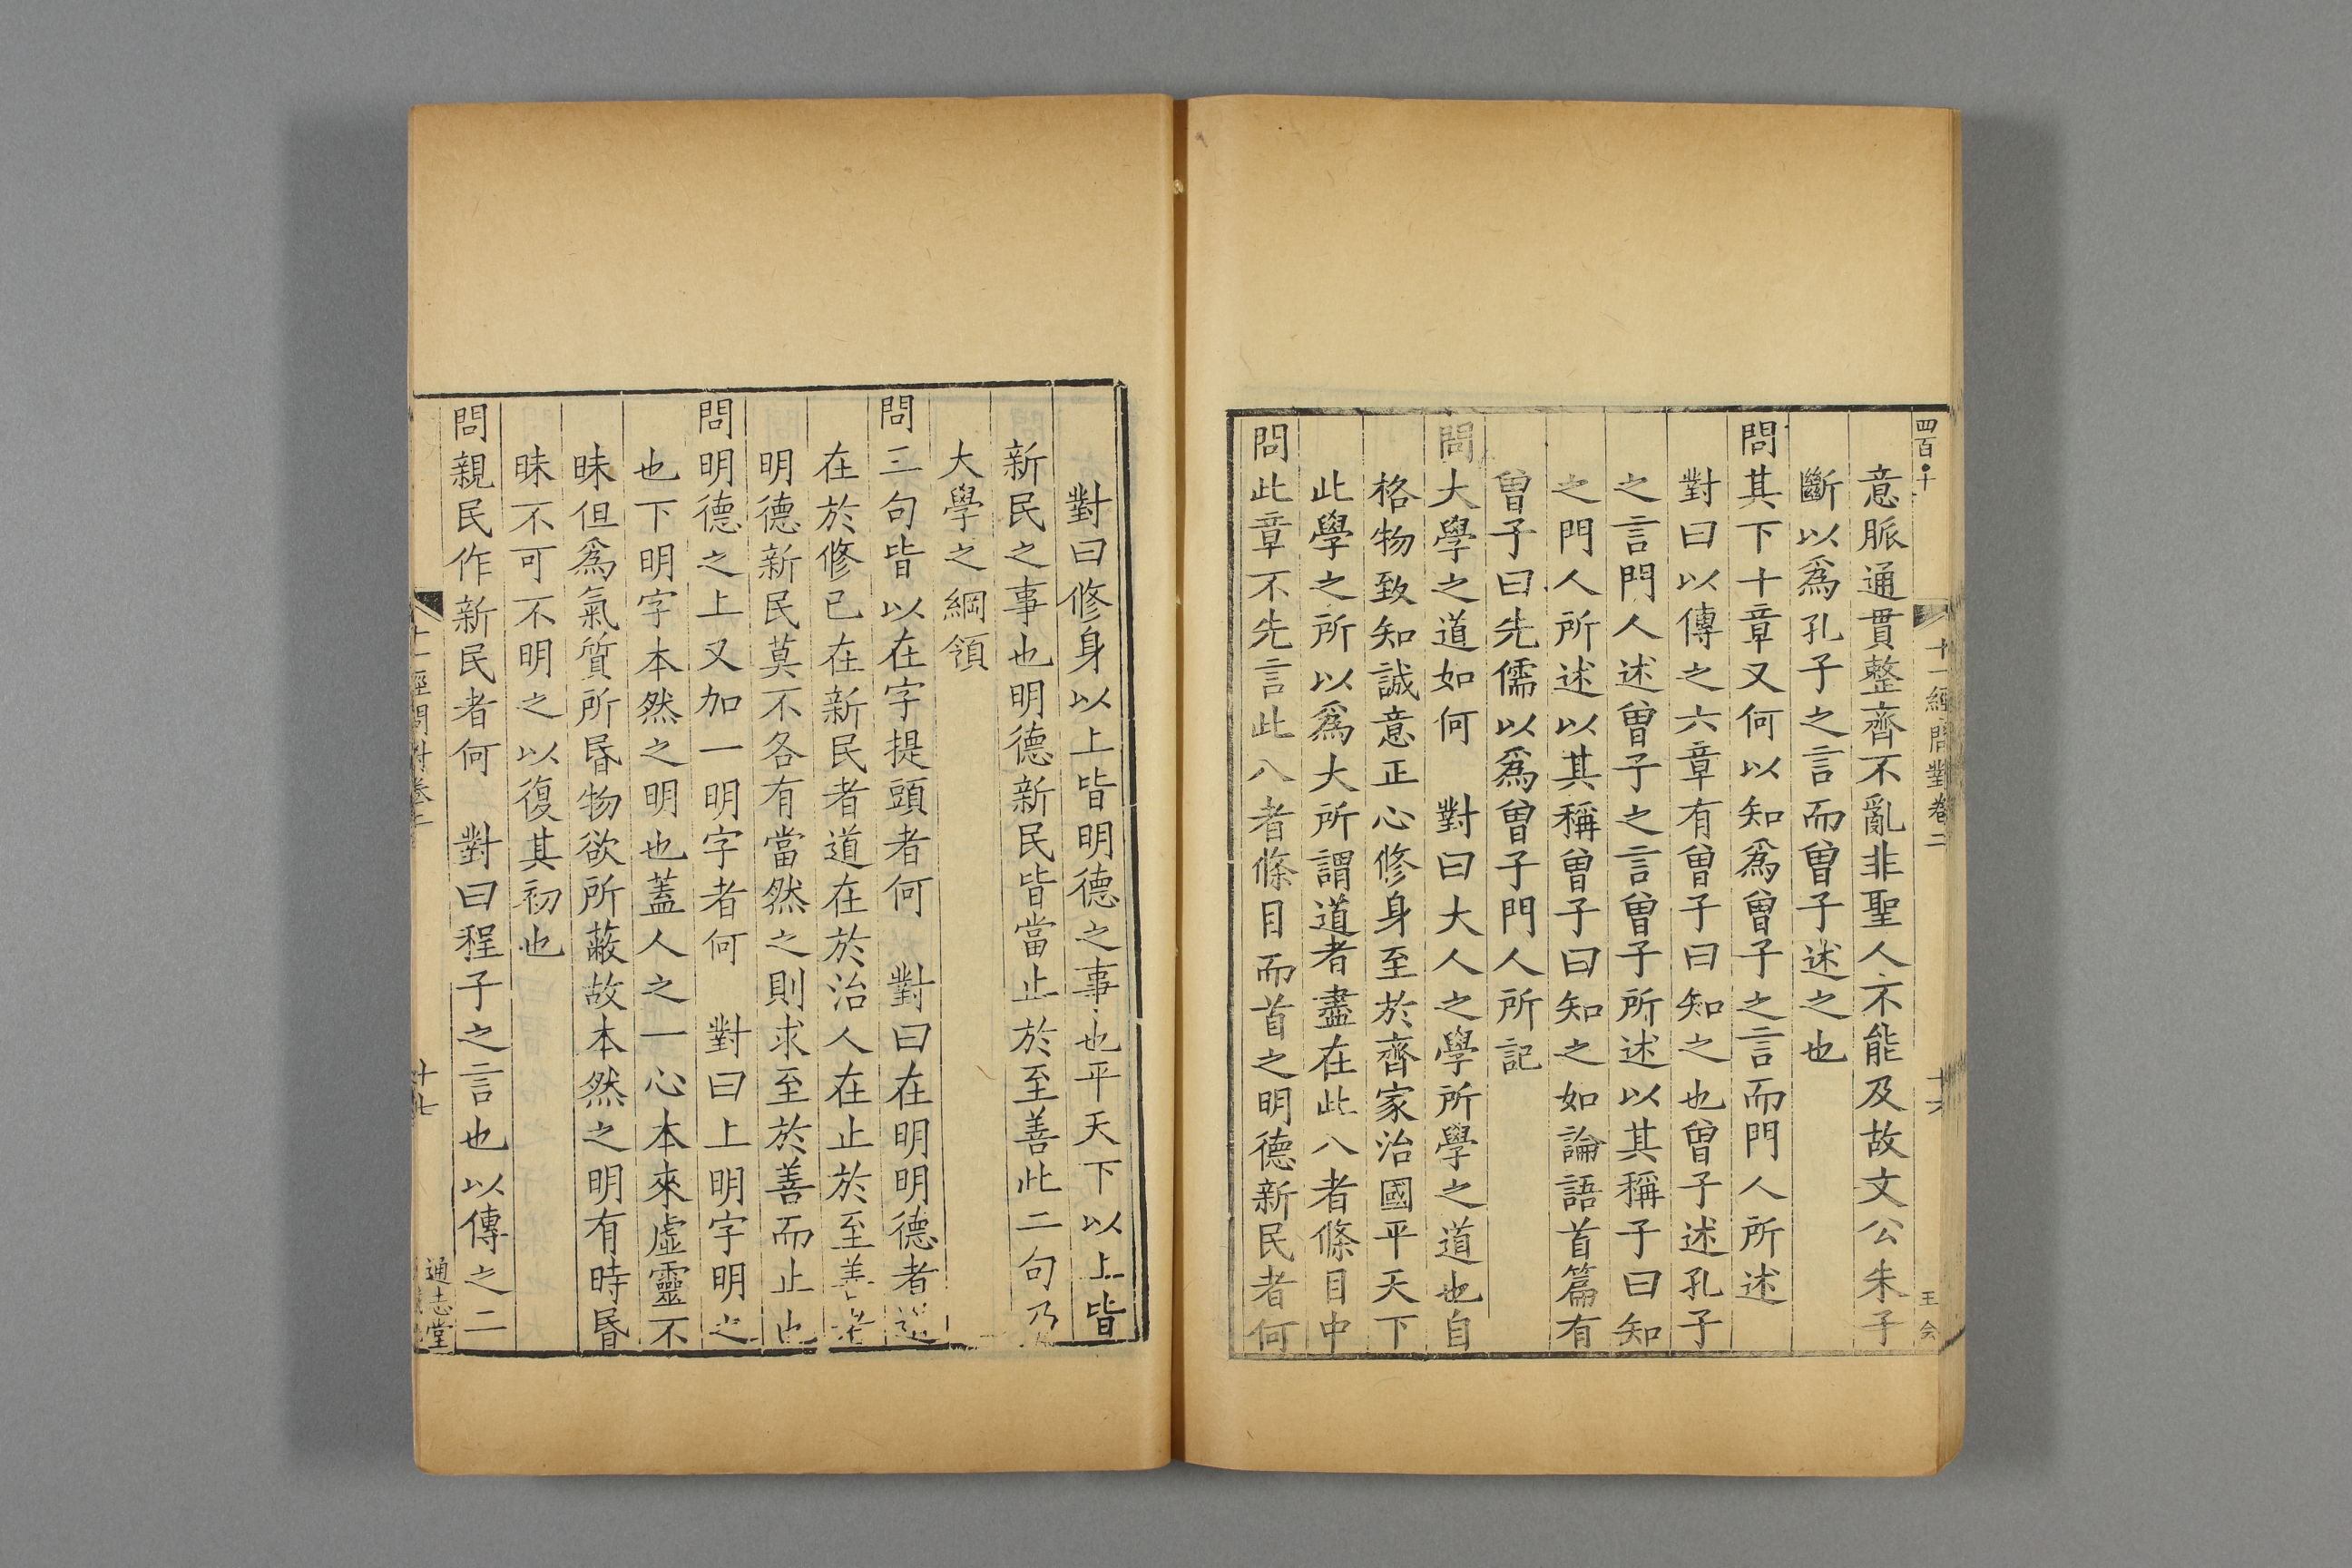 四百●十
十一經問對卷二
十六
王
意脈通貫整齊不亂非聖人不能及故文公朱子
斷以爲孔子之言而曾子述之也
問其下十章又何以知爲曾子之言而門人所述
對曰以傳之六章有曾子曰知之也曾子述孔子
之言門人述曾子之言曾子所述以其稱子曰知
之門人所述以其稱曾子曰知之如論語首篇有
曾子曰先儒以爲曾子門人所記
問大學之道如何　對曰大人之學所學之道也自
格物致知誠意正心修身至於齊家治國平天下
此學之所以爲大所謂道者盡在此八者條目中
問此章不先言此八者條目而首之明德新民者何
對曰修身以上皆明德之事也平天下以上皆
新民之事也明德新民皆當止於至善此二句乃
大學之綱領
問三句皆以在字提頭者何　對曰在明明德者道
在於修已在新民者道在於治人在止於至善者
明德新民莫不各有當然之則求至於善而止也
問明德之上又加一明字者何　對曰上明字明之
也下明字本然之明也蓋人之一心本來虛靈不
昧但爲氣質所昬物欲所蔽故本然之明有時昬
昧不可不明之以復其初也
問親民作新民者何　對曰程子之言也以傳之二
十一經問對卷二
十七
通志堂